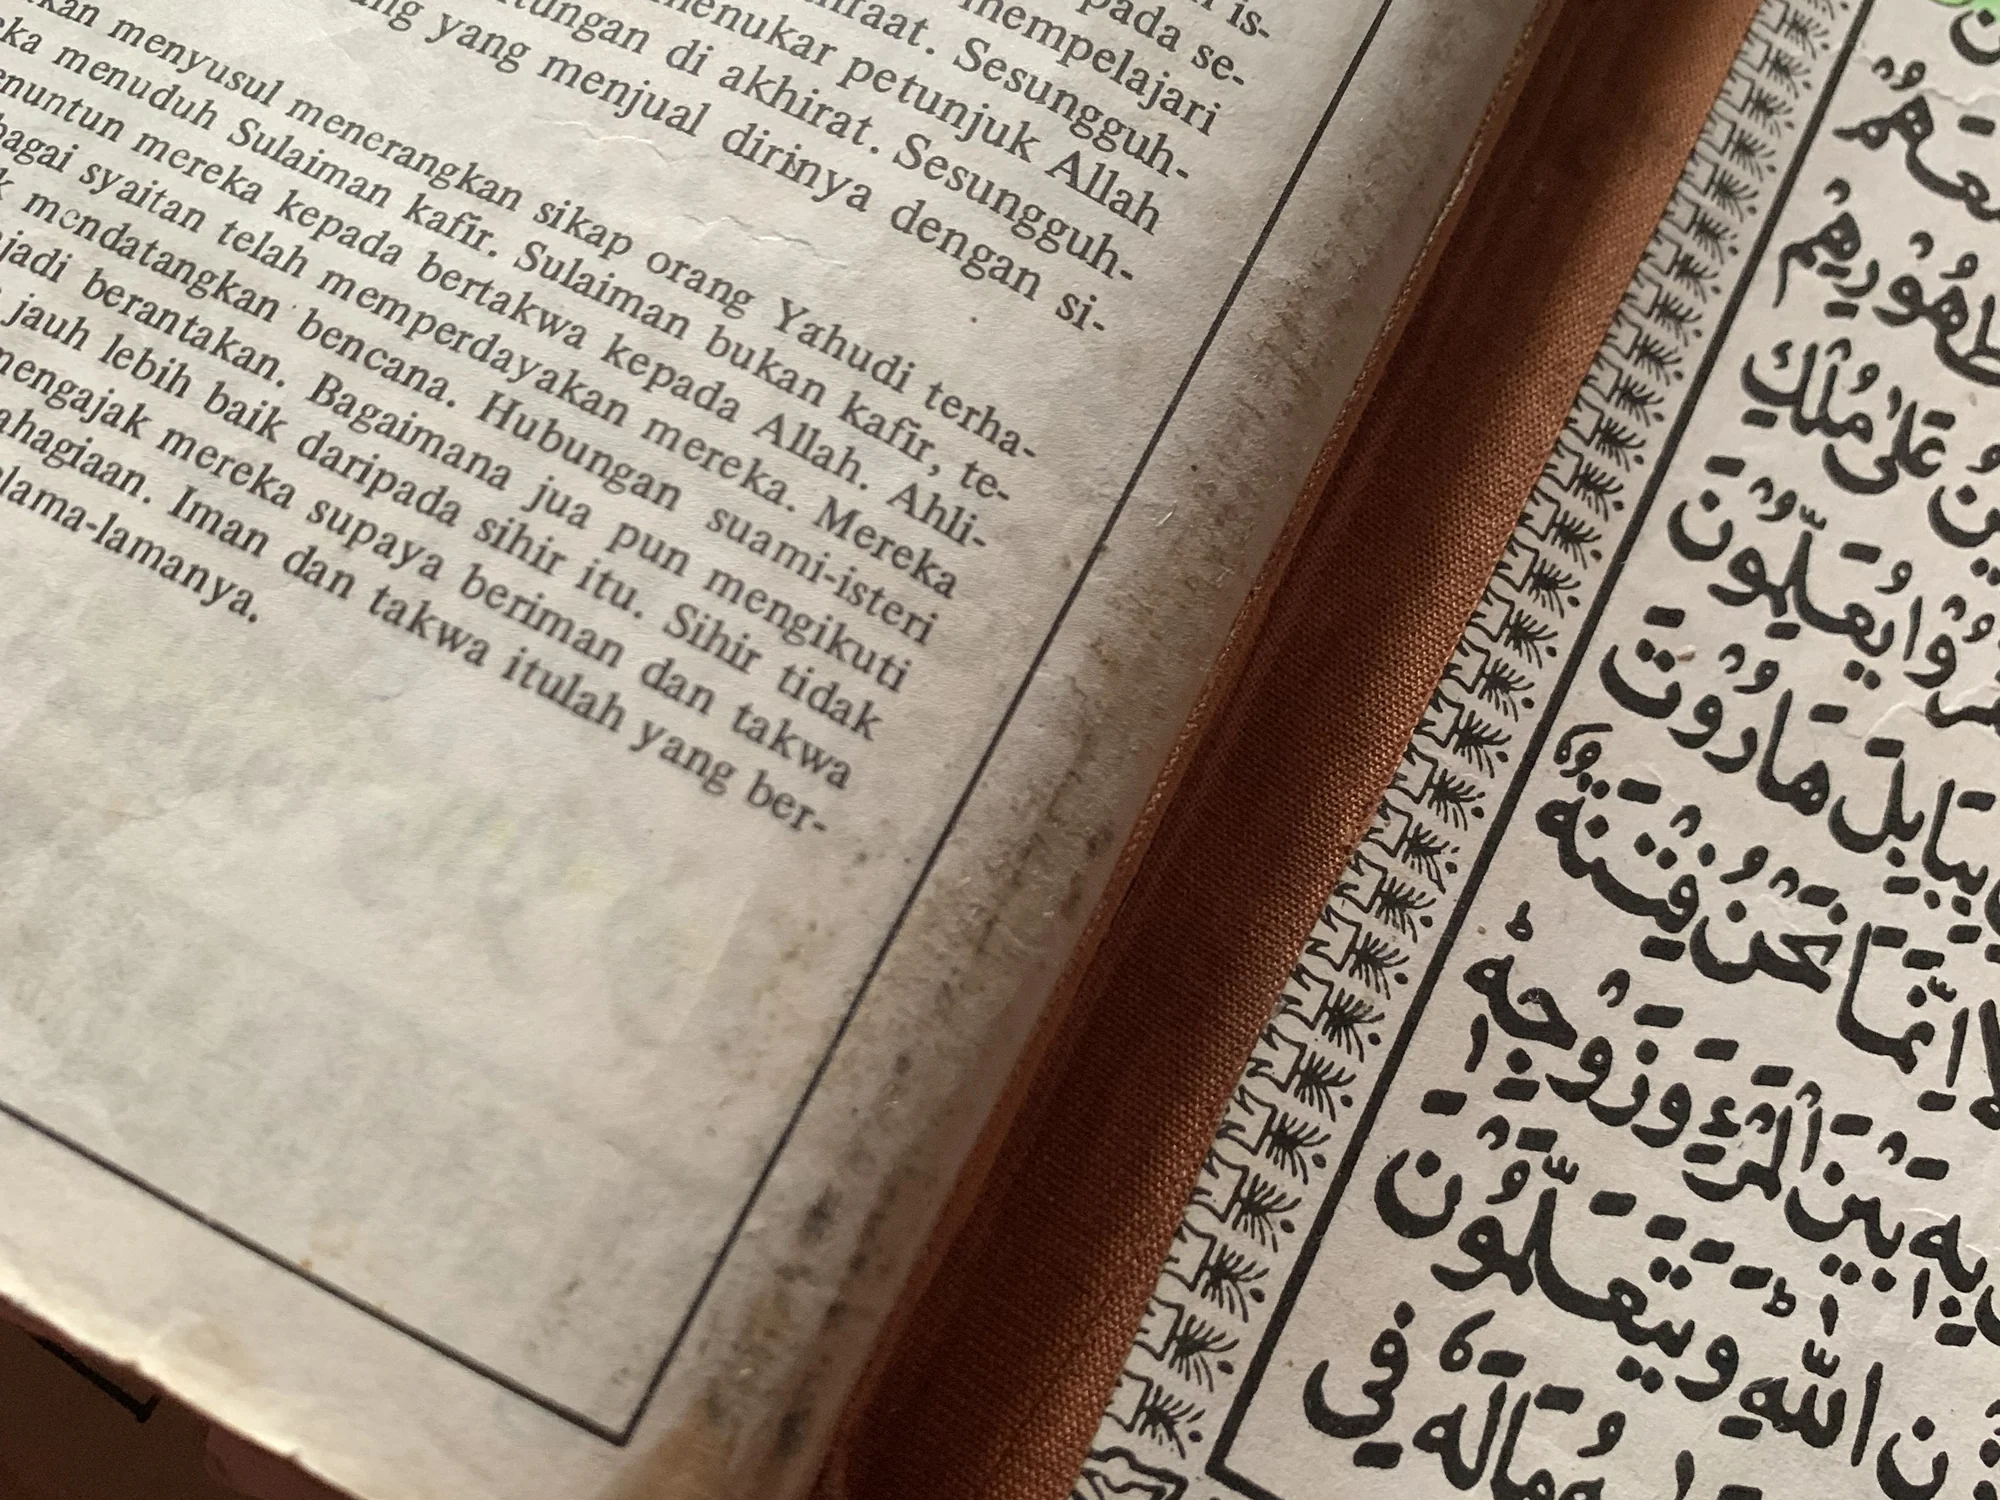 is-
pada se-
mempelajari
Sesungguh-
menukar petunjuk Allah
di akhirat. Sesungguh-
yang menjual dirinya dengan si-
menyusul menerangkan sikap orang Yahudi terha-
menuduh Sulaiman kafir. Sulaiman bukan kafir, te-
mereka kepada bertakwa kepada Allah. Ahli-
syaitan telah memperdayakan mereka. Mereka
mendatangkan bencana. Hubungan suami-isteri
berantakan. Bagaimana jua pun mengikuti
jauh lebih baik daripada sihir itu. Sihir tidak
mengajak mereka supaya beriman dan takwa
Iman dan takwa itulah yang ber-
lama-lamanya.
مَعَهُمْ
ظُهُوْرِهِمْ
عَلٰى مُلْكِ
يُعَلِّمُوْنَ
بِبَابِلَ هَارُوْتَ
اِنَّمَا نَحْنُ فِتْنَةٌ
بِهٖ بَيْنَ الْمَرْءِ وَزَوْجِهٖ
اللّٰهِ وَيَتَعَلَّمُوْنَ
مَالَهٗ فِي